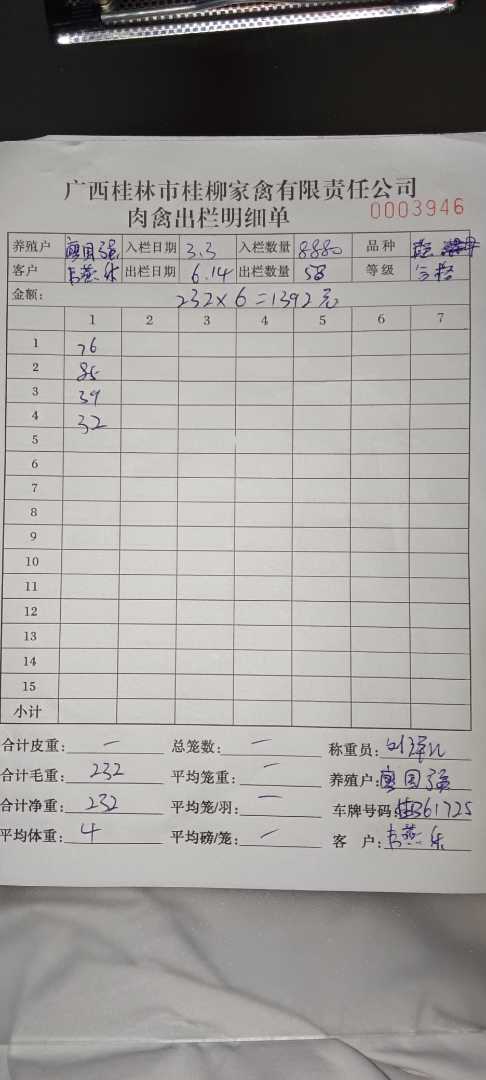 广西桂林市桂柳家禽有限责任公司
肉禽出栏明细单 0003946
养殖户 入栏日期 3.3 入栏数量 8880 品种
客户 韦燕乐 出栏日期 6.14 出栏数量 58 等级
金额: 232×6=1392元
1 2 3 4 5 6 7
1 76
2 85
3 39
4 32
5
6
7
8
9
10
11
12
13
14
15
小计
合计皮重: — 总笼数: — 称重员:
合计毛重: 232 平均笼重: — 养殖户: 国强
合计净重: 232 平均笼/羽: — 车牌号码:
平均体重: 4 平均磅/笼: — 客 户: 韦燕乐